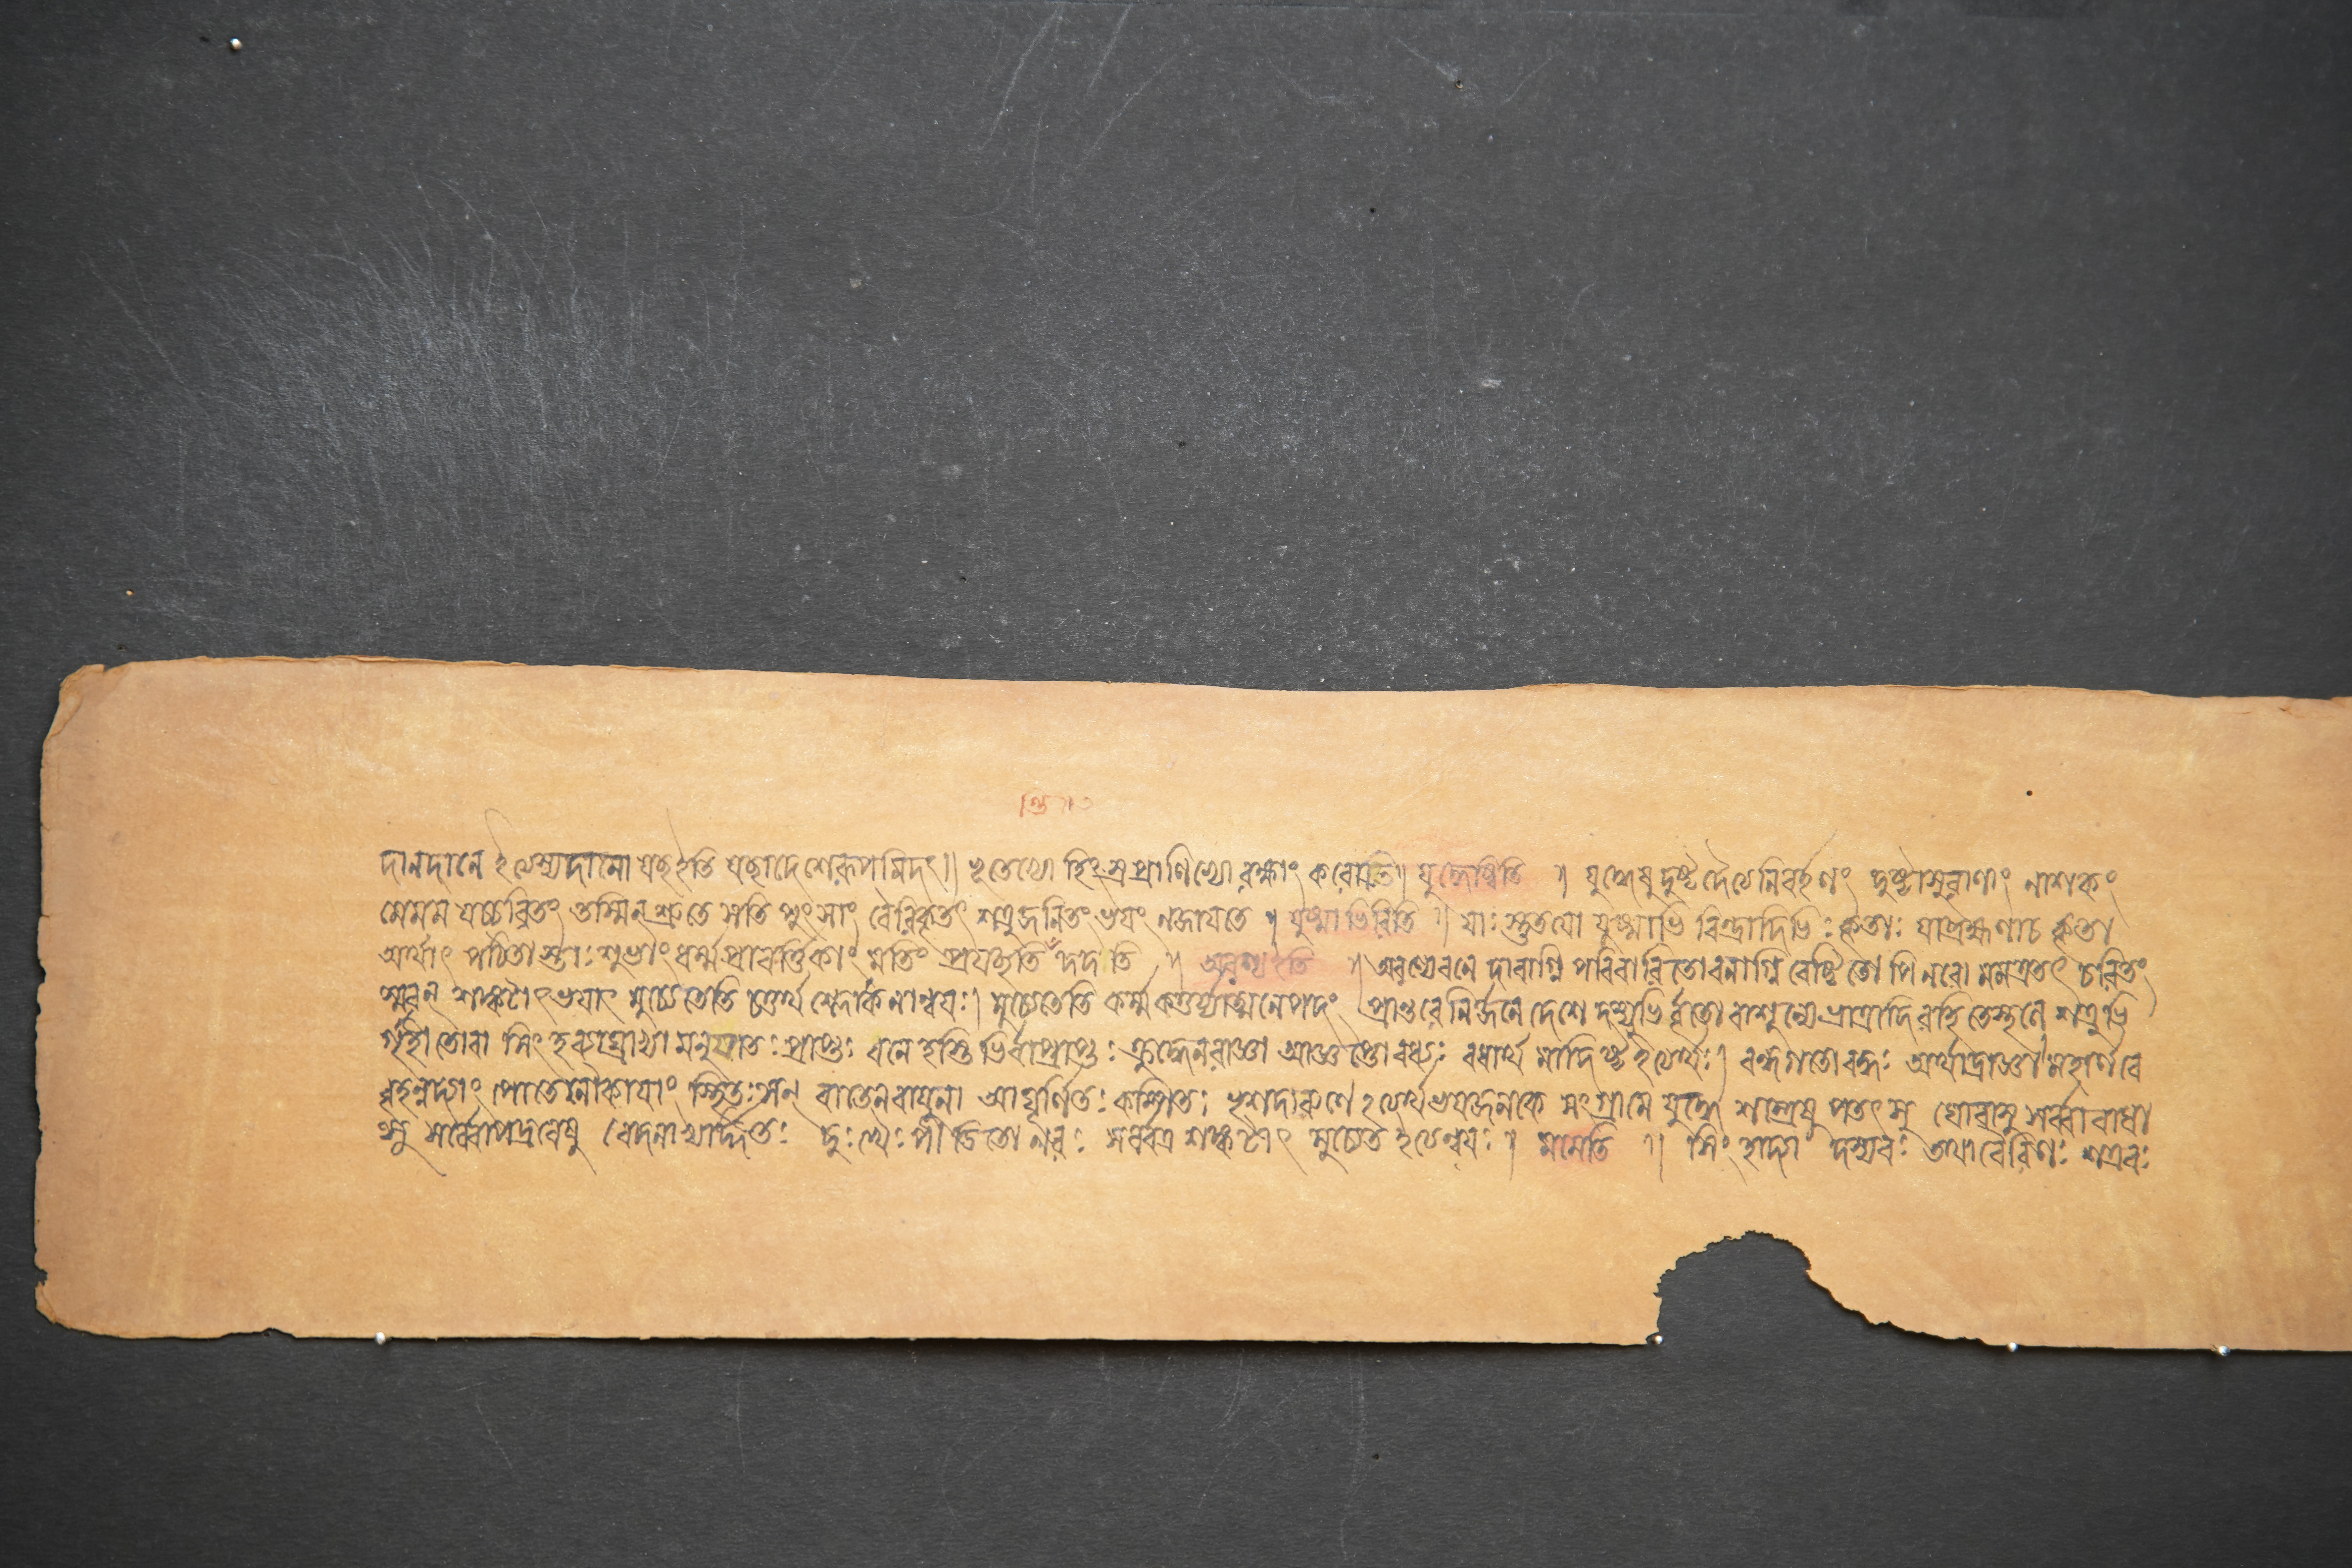 দানদানে ইত্যস্মাদানো যছ ইতি যছাদেশেরূপমিদং॥ ভূতেভ্যো হিংস্রপ্রাণিভ্যো রক্ষাং করোতি॥ যুদ্ধেষ্বিতি ॥ যুদ্ধেষু দুষ্টদৈত্যেনিবর্হণং দুষ্টাসুরাণাং নাশকং
মেমম যচ্চরিতং তস্মিন্ শ্রুতে সতি পুংসাং বৈরিকৃতং শত্রুজনিতং ভয়ং নজায়তে ॥ যুষ্মাভিরিতি ॥ যাঃ স্তুতয়ো যুষ্মাভি রিন্দ্রাদিভিঃ কৃতাঃ যাব্রহ্মণাচ কৃতা
অর্থাৎ পঠিতাস্তাঃ শুভাং ধর্ম্মপ্রাবর্ত্তিকাং মতিং প্রযচ্ছতি দদতি ॥ অরণ্যইতি ॥ অরণ্যেবনে দাবাগ্নি পরিবারিতো বনাগ্নি বেষ্টিতো পি নরো মমৈতৎ চরিতং
স্মরন্ শঙ্কটাৎ ভয়াৎ মুচ্যেতেতি চতুর্থ শ্লোকেনান্বয়ঃ। মুচ্যেতেতি কর্ম্মকর্ত্তর্য্যাত্মনেপদং প্রান্তরে নির্জ্জনে দেশে দস্যুভির্ব্বৃতো বাশূন্যে ভ্রাত্রাদিরহিতেস্থানে শত্রুভি
র্গৃহীতোবা সিংহব্যাঘ্রাভ্যা মনুযাতঃ প্রাপ্তঃ বনে হস্তিভির্বাপ্রাপ্তঃ ক্রুদ্ধেনরাজ্ঞা আজ্ঞপ্তো বধ্যঃ বধার্থ মাদিষ্ট ইত্যর্থঃ। বন্ধগতো বদ্ধঃ অর্থাদ্রাজ্ঞা মহার্ণবে
বৃহন্নদ্যাং পোতেনৌকায়াং স্থিতঃ সন্ বাতেনবায়ুনা আঘূর্ণিতঃ কম্পিতঃ ভৃশদারুণে ২ত্যর্থভয়জনকে সংগ্রামে যুদ্ধে শস্ত্রেষু পতৎসু ঘোরাসু সর্ব্বাবাধা
সু সর্ব্বোপদ্রবেষু বেদনাভ্যর্দ্দিতঃ দুঃখৈঃ পীডিতো নরঃ সর্বত্র শঙ্কটাৎ মুচ্যেত ইত্যন্বয়ঃ ॥ মমেতি ॥ সিংহাদ্যা দস্যবঃ তথাবৈরিণঃ শত্রবঃ